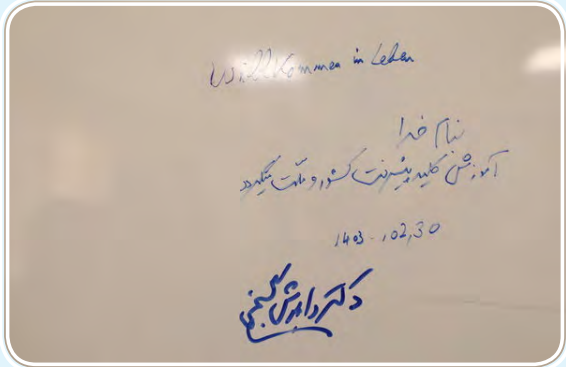 Willkommen in Leben
بنام خدا
آموزش کلید پیشرفت کشور و ملت
1403-,02,30
دکتر داریوش